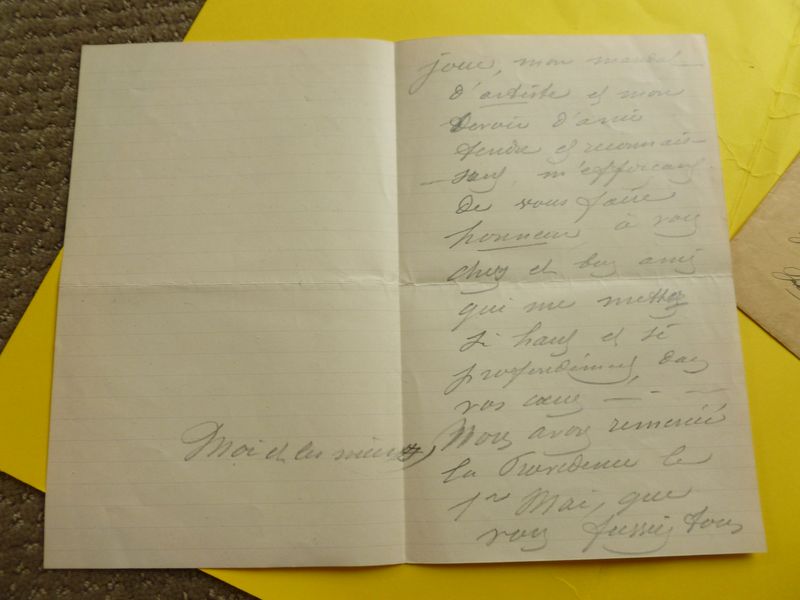 joue, mon mandat
d'artiste et mon
devoir d'amie
tendre et reconnais-
-sant, m'efforçant
de vous faire
honneur à vous
chers et bons amis
qui me mettez
si haut et si
profondément dans
vos cœurs — - —
Moi et les miens, Nous avons remercié
la Providence le
1er Mai, que
vous fussiez tous